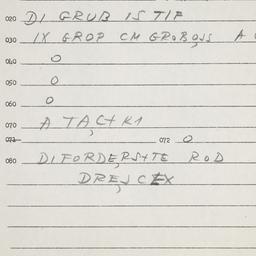 020 DI GRUB IS TIF
030 IX GROP CM GROBOSS A
040 O
050 O
060 O
070 A TACHKA
072 072 O
080 DIFORDERSHTE ROD
DREJCEX